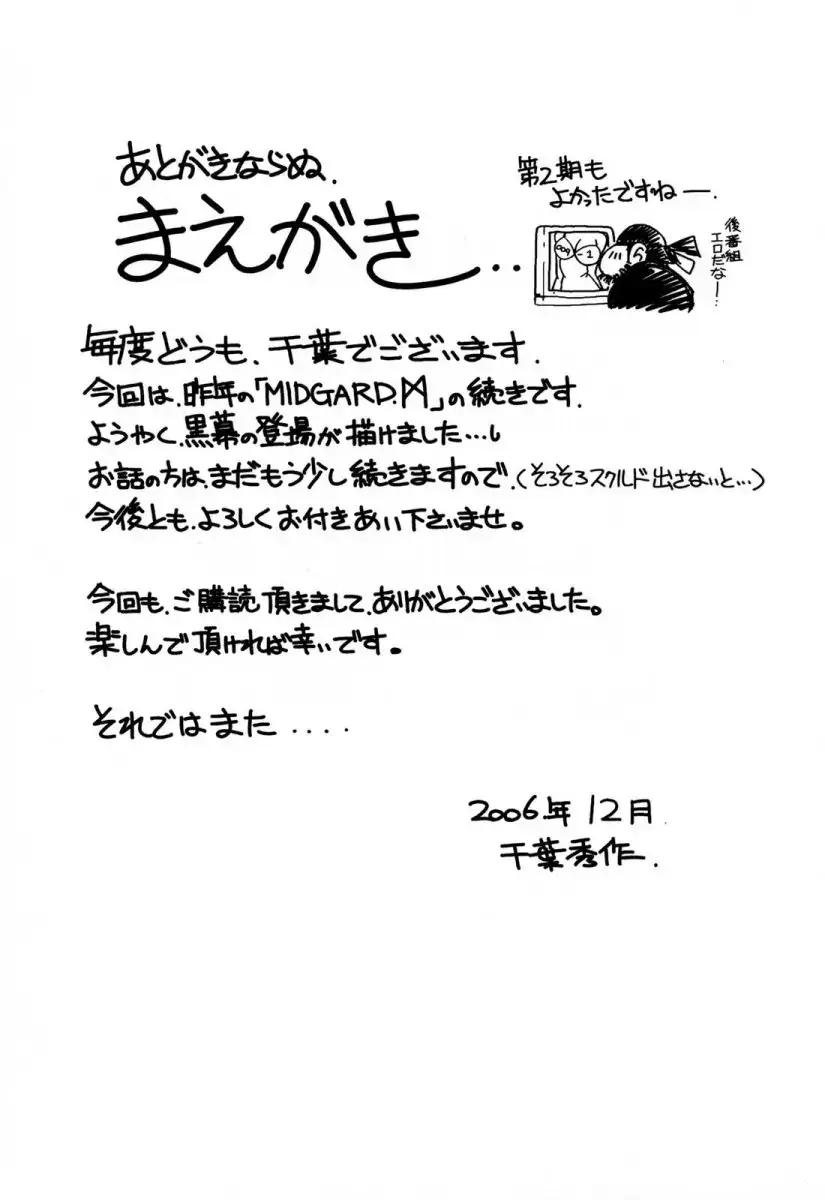 あとがきならぬ、
まえがき‥
第2期も
よかったですねー.
後番組
エロだなー…
毎度どうも、千葉でございます.
今回は、昨年の「MIDGARD.ᛞ」の続きです.
ようやく、黒幕の登場が描けました…し
お話の方は、まだもう少し続きますので、(そろそろスクルド出さないと…)
今後とも、よろしくお付きあい下さいませ。
今回も、ご購読頂きまして、ありがとうございました。
楽しんで頂ければ幸いです。
それではまた ....
2006年 12月
千葉秀作.